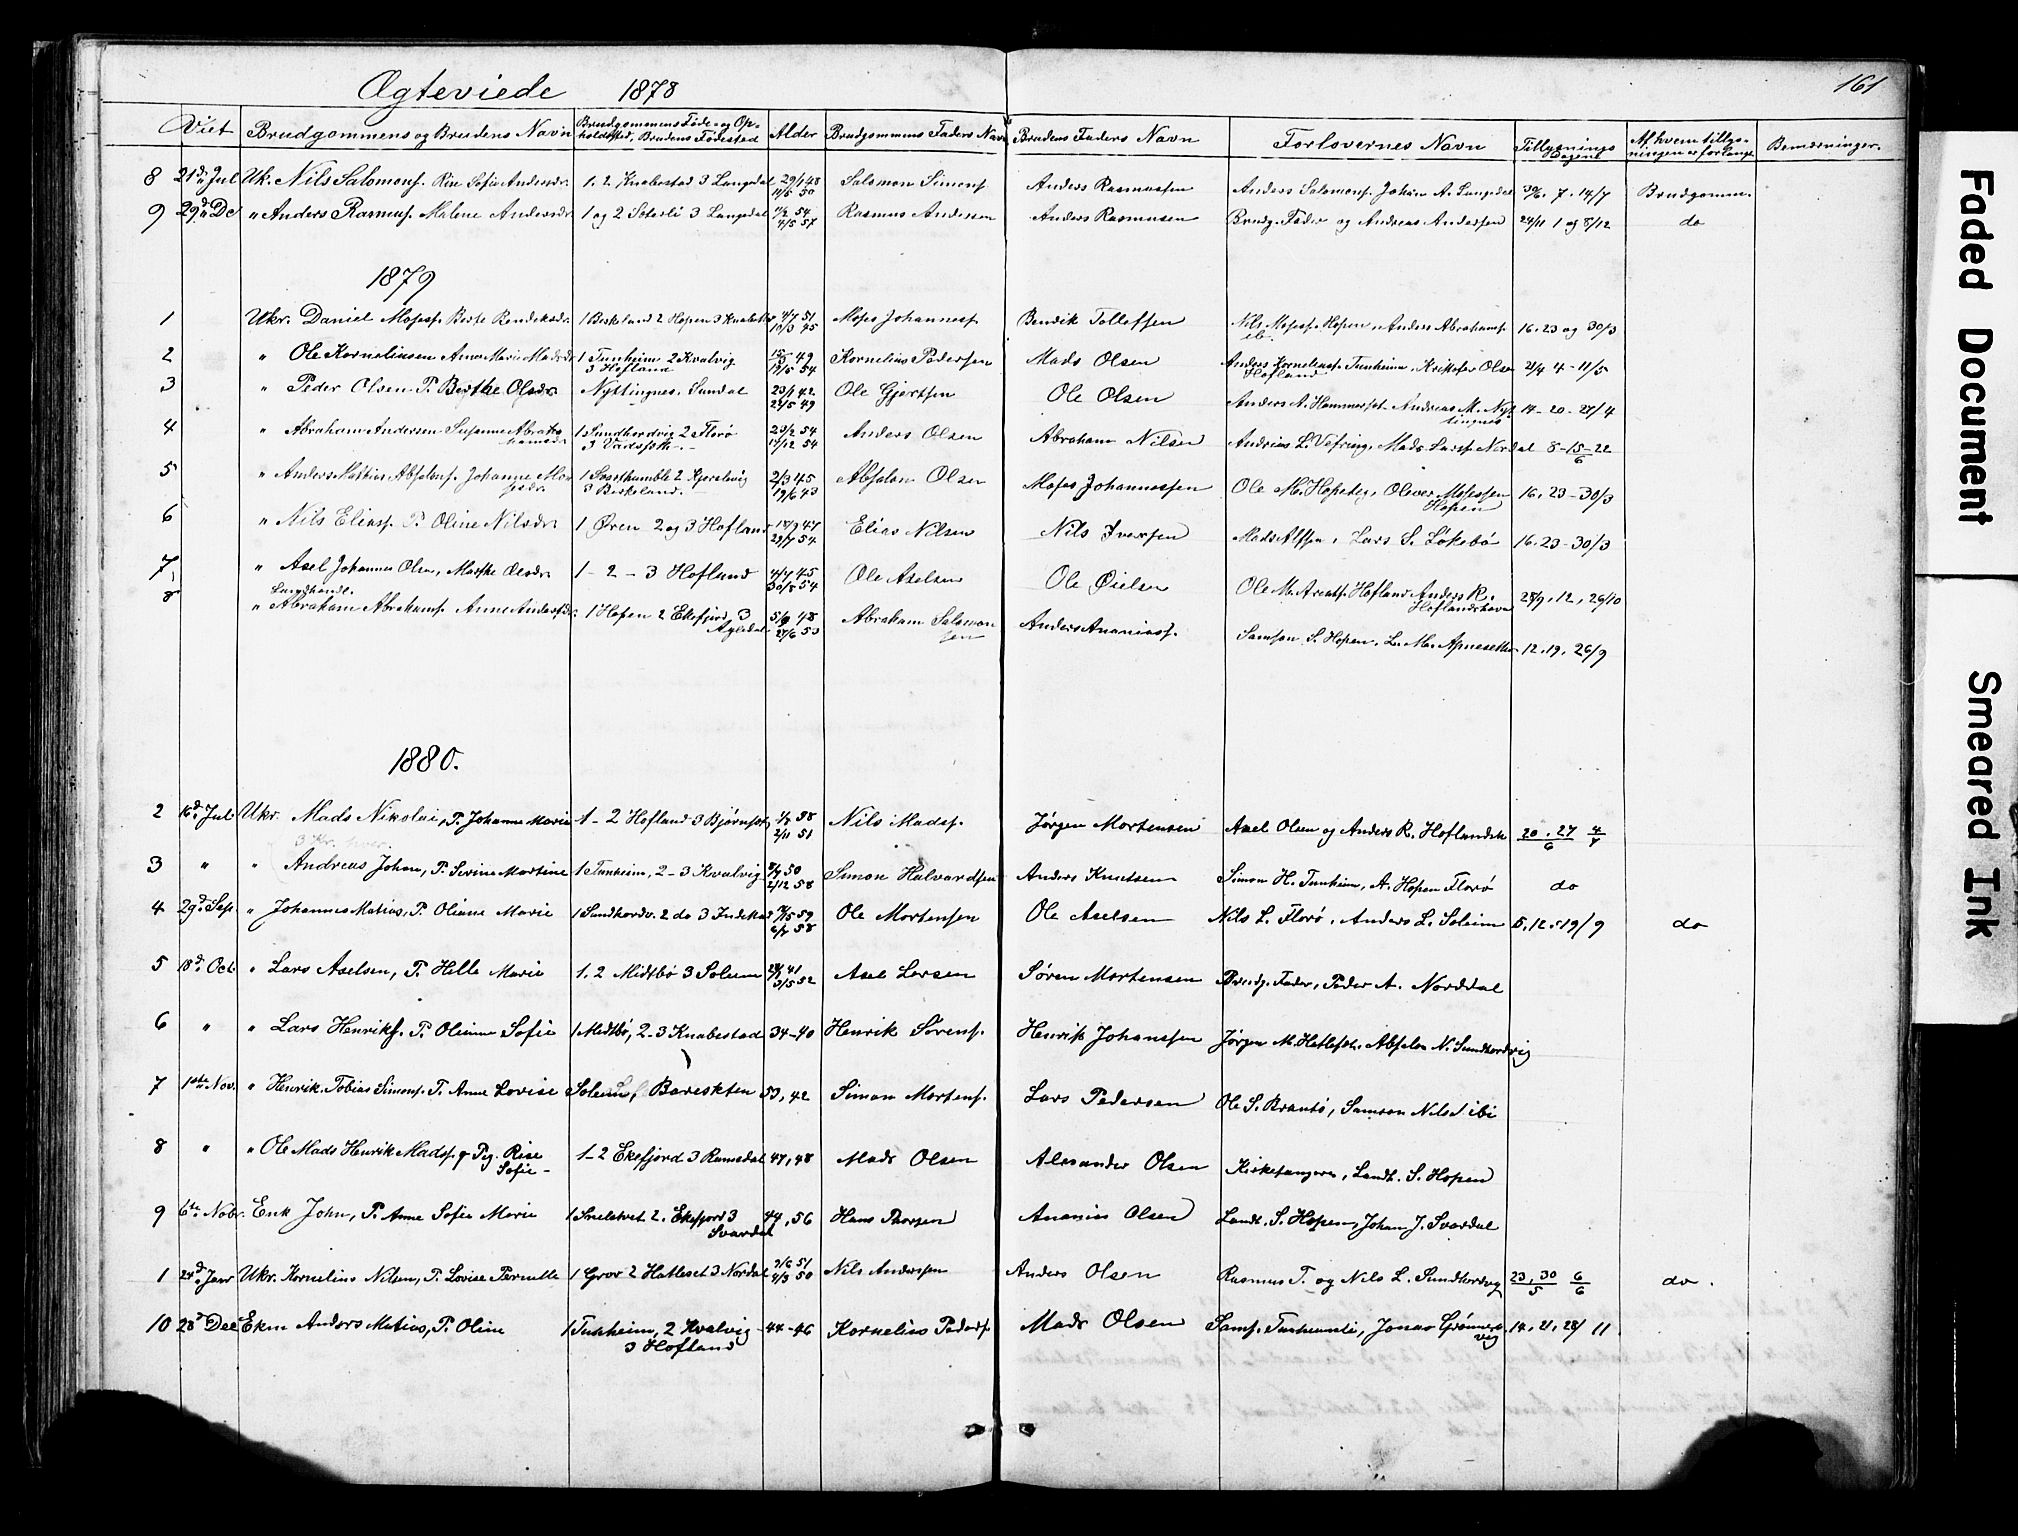 161
Ægteviede 1878
Viet Brudgommens og Brudens Navn Brudgommens Føde- og Opholdssted, Brudens Fødested Alder Brudgommens Faders Navn Brudens Faders Navn Forlovernes Navn Tillysnings Dagene Af hvem tillysningen er forlangt Bemærkninger.
8 21d Jul Uk. Nils Salomons. Rise Sofie Andersdr. 1. 2 Knabestad 3 Langedal 29/1 48 11/5 50 Salomon Simons. Anders Rasmussen Anders Salomons. Johan A. Langedal 30/6. 7. 14/7 Brudgomm.
9 29d Dc " Anders Rasmus. Malene Andersdr. 1 og 2 Seterli 3 Langedal 1/2 54 4/5 57 Rasmus Andersen Anders Rasmussen Brudg. Fader og Andreas Andersen 24/11 1 og 8/12 do
1879
1 Ukr. Daniel Moses. Berte Bendiksdr. 1 Birkeland 2 Hopen 3 Knabestad 4/7 51 10/3 45 Moses Johanness. Bendik Tollefsen Nils Moses. Hopen, Anders Abrahams. ib. 16. 23 og 30/3
2 " Ole Korneliusen Anne Marie Madsdr. 1 Tunheim 2 Kvalvig 3 Hofland 49 19/5 54 Kornelius Pedersen Mads Olsen Anders Korneliuss. Tunheim, Kristofer Olsen Hofland 21/4 4 - 11/5
3 " Peder Olsen P. Berthe Olsdr. Nyttingnes. Sundal 23/1 42 24/5 49 Ole Gjertsen Ole Olsen Anders A. Hammerset Andreas M. Nyttingnes 14 - 20 - 27/4
4 " Abraham Andersen Susanne Abrahamsdr. 1 Sundhordvig 2 Florø 3 23/2 54 17/12 54 Anders Olsen Abraham Nilsen Andrias L. Vefring, Mads Larss. Nordal 8 - 15 - 22/6
5 " Anders Mathias Absalons. Johanne Mosesdr. 1 2 3 Birkeland. 2/3 45 19/6 43 Absalon Olsen Moses Johannessen Ole M. Hopeteg, Oliver Mosessen Hopen 16. 23 - 30/3
6 " Nils Elias. P. Oline Nilsdr. 1 Øren 2 og 3 Hofland 18/9 47 29/7 54 Elias Nilsen Nils Iversen Mads Alfsen, Lars S. Løkebø 16. 23 - 30/3
7 " Axel Johannes Olsen, Marthe Olesdr. 1 - 2 - 3 Hofland 4/7 45 30/8 54 Ole Axelsen Ole Øielsen Ole M. Hofland Anders R. Hoflandshavn 28/9, 12, 26/10
8 Landhandl. " Abraham Abrahams. Anne Andersdr. 1 Hopen 2 Ekefjord 3 5/9 48 27/6 53 Abraham Salomonsen Anders Ananiass. Samson S. Hopen, L. M. Apneseth 12. 19. 26/9
1880.
2 16d Jul Ukr. Mads Nikolai, P. Johanne Marie 1 - 2 Hofland 3 Bjørnset 58 2/11 51 Nils Mads. Jørgen Mortensen Axel Olsen og Anders R. Hoflandsh. 20. 27/6 4/7
3 Kr. hver.
3 " " Andreas Johan, P. Serine Martine 1 Tunheim, 2 - 3 Kvalvig 50 2/12 58 Simon Halvardsen Anders Knutsen Simon H. Tunheim, A. Hopen Florø do
4 29d Sep. " Johannes Matias, P. Oliane Marie 1 Sundhordv. 2 do 3 Indrekvam 59 6/7 58 Ole Mortensen Ole Axelsen Nils L. Florø, Anders L. Soleim 5. 12. 19/9 do
5 18d Oct. " Lars Axelsen, P. Helle Marie 1. 2 Midtbø 3 Soleim 41 3/5 52 Axel Larsen Søren Mortensen Brudg. Fader, Peder A. Norddal
6 " " Lars Henriks. P. Olianne Sofie 1 Midtbø, 2 - 3 Knabestad 34 - 40 Henrik Sørens. Henrik Johanssen Jørgen M. Hatleset. Absalon N. Sundhordvig
7 1ste Nov. " Henrik Tobias Simons. P. Anne Lovise Soleim, Bareksten 53, 42 Simon Mortens. Lars Pedersen Ole S. Brantø, Samson Nils. ibi
8 " " Ole Mads Henrik Mads. & Pg. Rise Sofie - 1 - 2 Ekefjord 3 Ramsdal 47, 48 Mads Olsen Alexander Olsen Kirkesanger, Landh. S. Hopen
9 6te Nobr. Enk John, P. Anne Sofie Marie 1 2. Ekefjord 3 Svardal 44, 56 Hans Thorsen Ananias Olsen Landh. S. Hopen, Johan J. Svardal
1 24d Janr Ukr. Kornelius Nilsen, P. Lovise Pernelle 1 Grov 2 Hatleset 3 Nordal 3/6 51 4/3 50 Nils Andersen Anders Olsen Rasmus T. og Nils L. Sundhordvg 23, 30/5 6/6 do.
10 28d Dec Ekm Anders Matias, P. Oline 1 Tunheim, 2 Kvalvig 3 Hofland 44 - 46 Kornelius Peders. Mads Olsen Sams. Tunheimli, Jonas Grønnevig 14, 21, 28/11
Faded Document
Smeared Ink